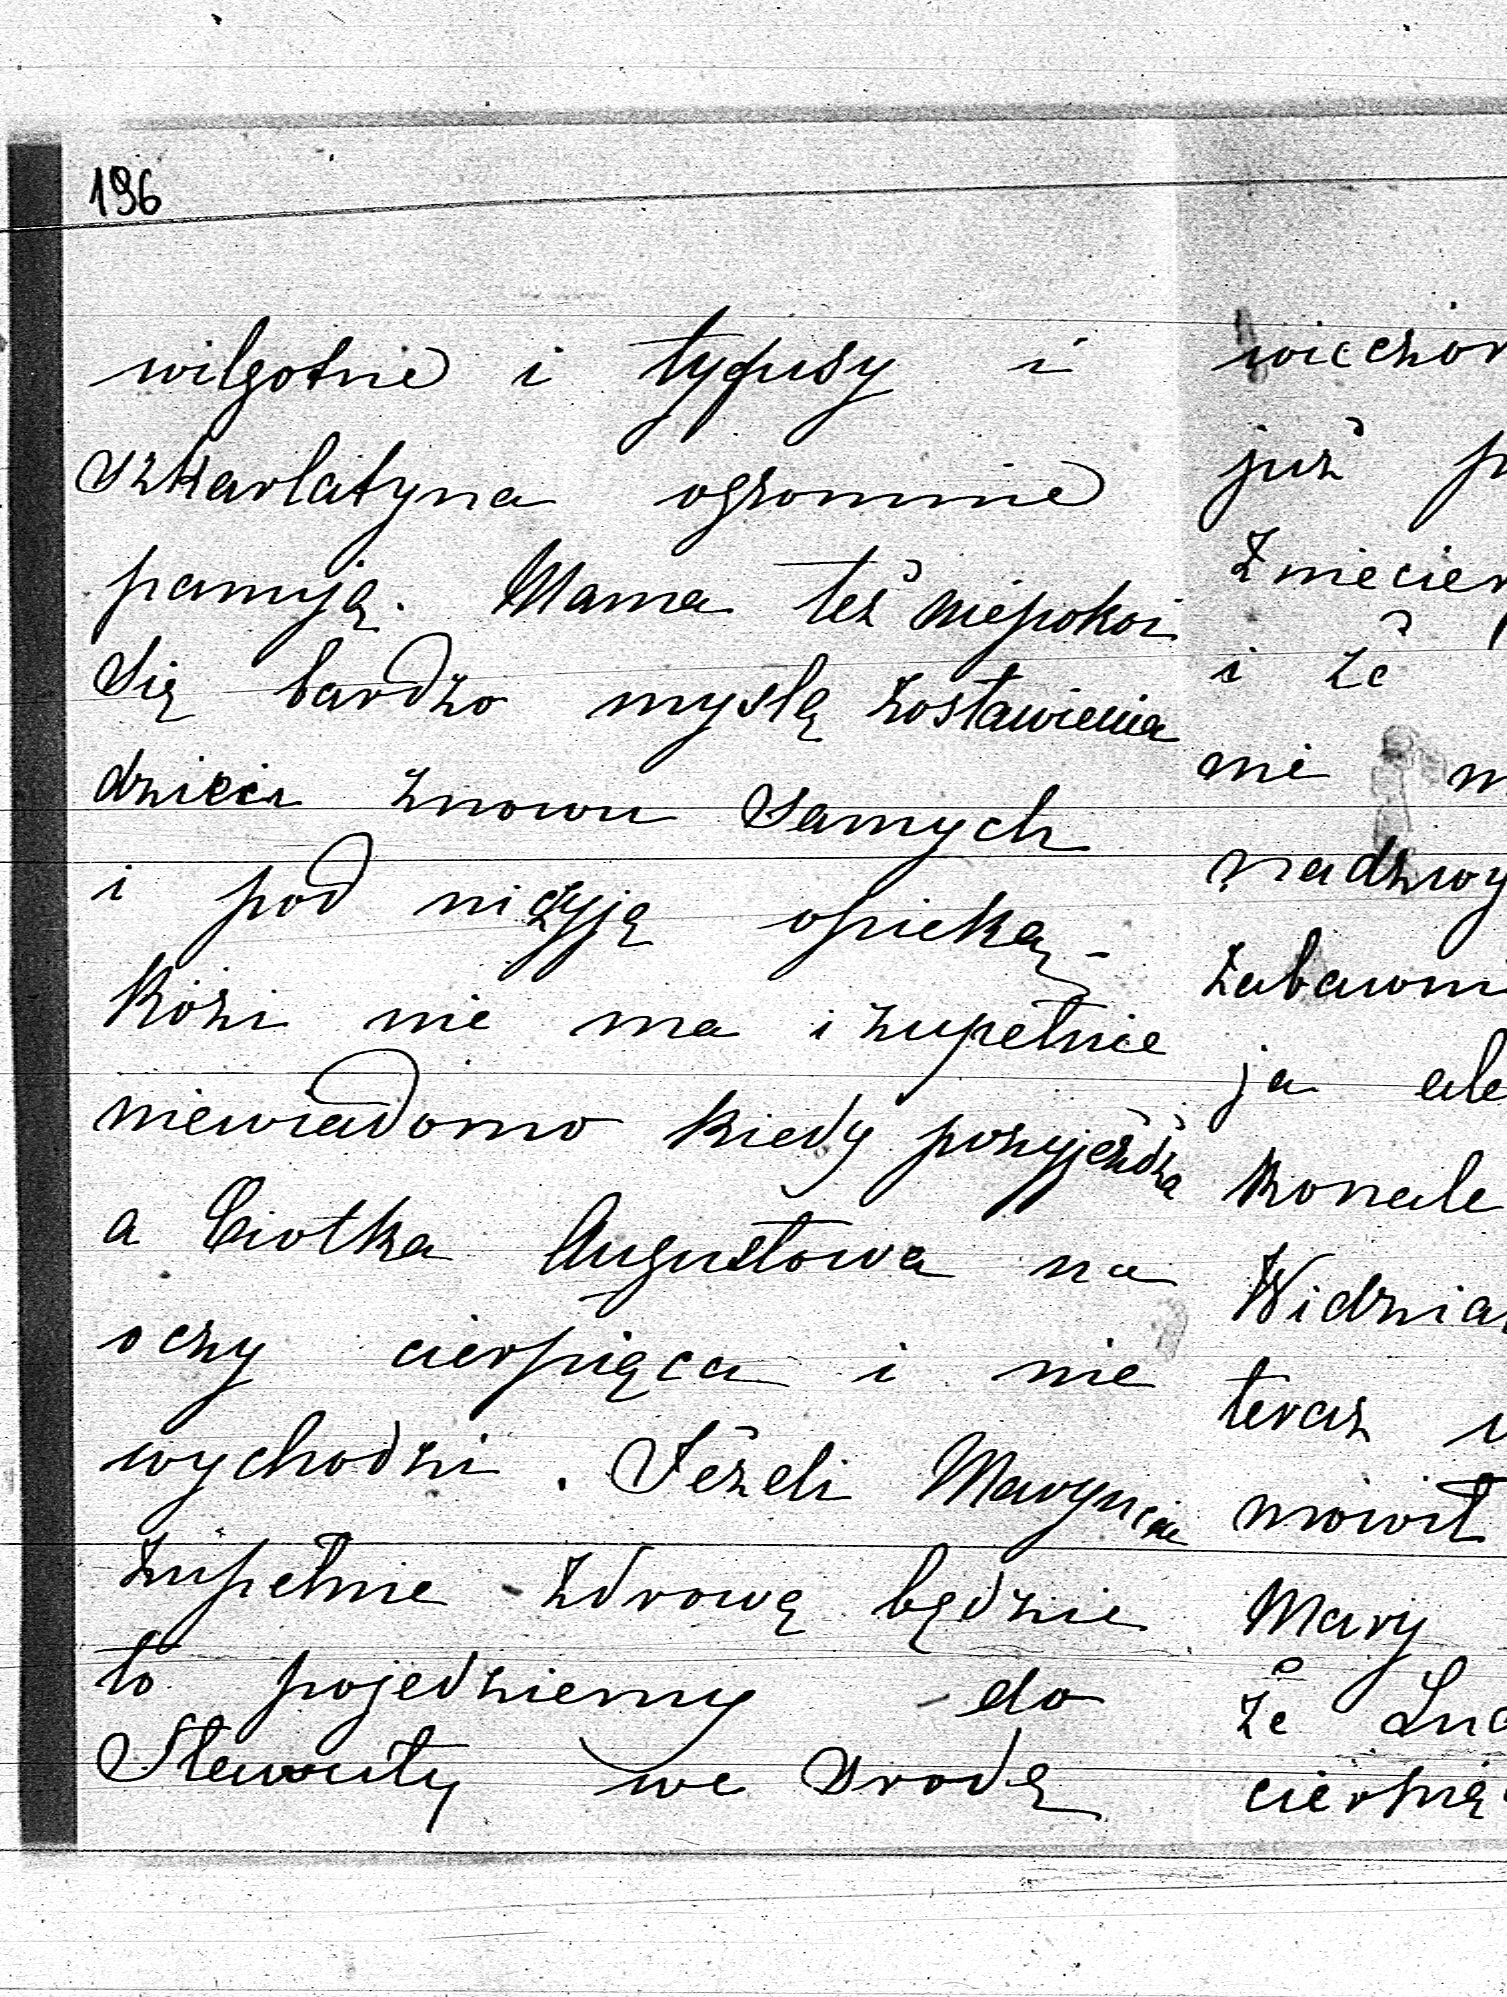 196
wilgotnie i tyfusy i
szkarlatyna ogromnie
panują. Mama też niepokoi
się bardzo myślą zostawienia
dzieci znowu samych
i pod niczyją opieką -
Rózi nie ma i zupełnie
niewiadomo kiedy przyjeżdża
a Ciotka Augustowa na
oczy cierpiąca i nie
wychodzi. Jeżeli Marynia
zupełnie zdrową będzie
to pojedziemy do
Sławuty we środę
wieczor
już p
Zniecier
i że
nie m
nadzwy
zabawni
ja ale
Konale
Widzia
teraz
mówił
Mary
że
cierpią